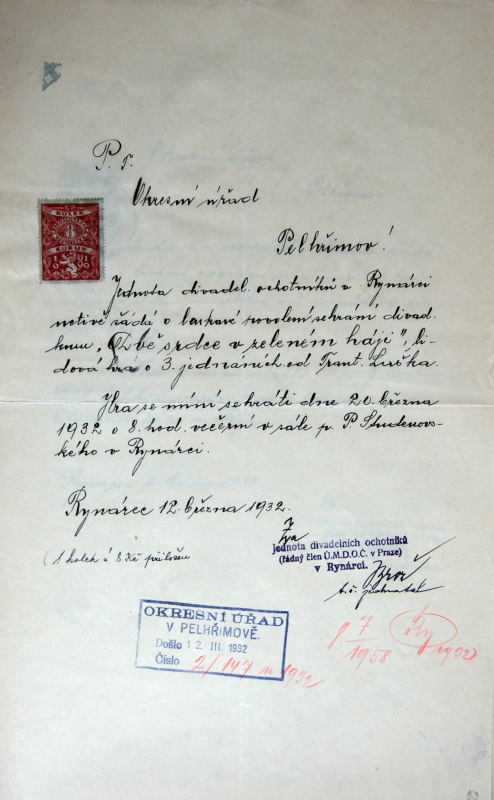 P. T.
Okresní úřad
Pelhřimov!
KOLEK
8
KORUN
Jednota divadel. ochotníků v Rynárci
uctivě žádá o laskavé povolení sehrání divad.
kusu „Dvě srdce v zeleném háji", li-
dová hra o 3. jednáních od Frant. Luska.
Hra se míní sehráti dne 20. března
1932 o 8. hod. večerní v sále p. P. Studenov-
ského v Rynárci.
Rynárec 12. března 1932.
Za
(1 kolek á 8 Kč přiložen
jednota divadelních ochotníků
(řádný člen Ú.M.D.O.Č. v Praze)
v Rynárci.
t.č. jednatel
OKRESNÍ ÚŘAD
V PELHŘIMOVĚ.
Došlo 12. III. 1932
Číslo 2/147 1932
7
1958
1932
53